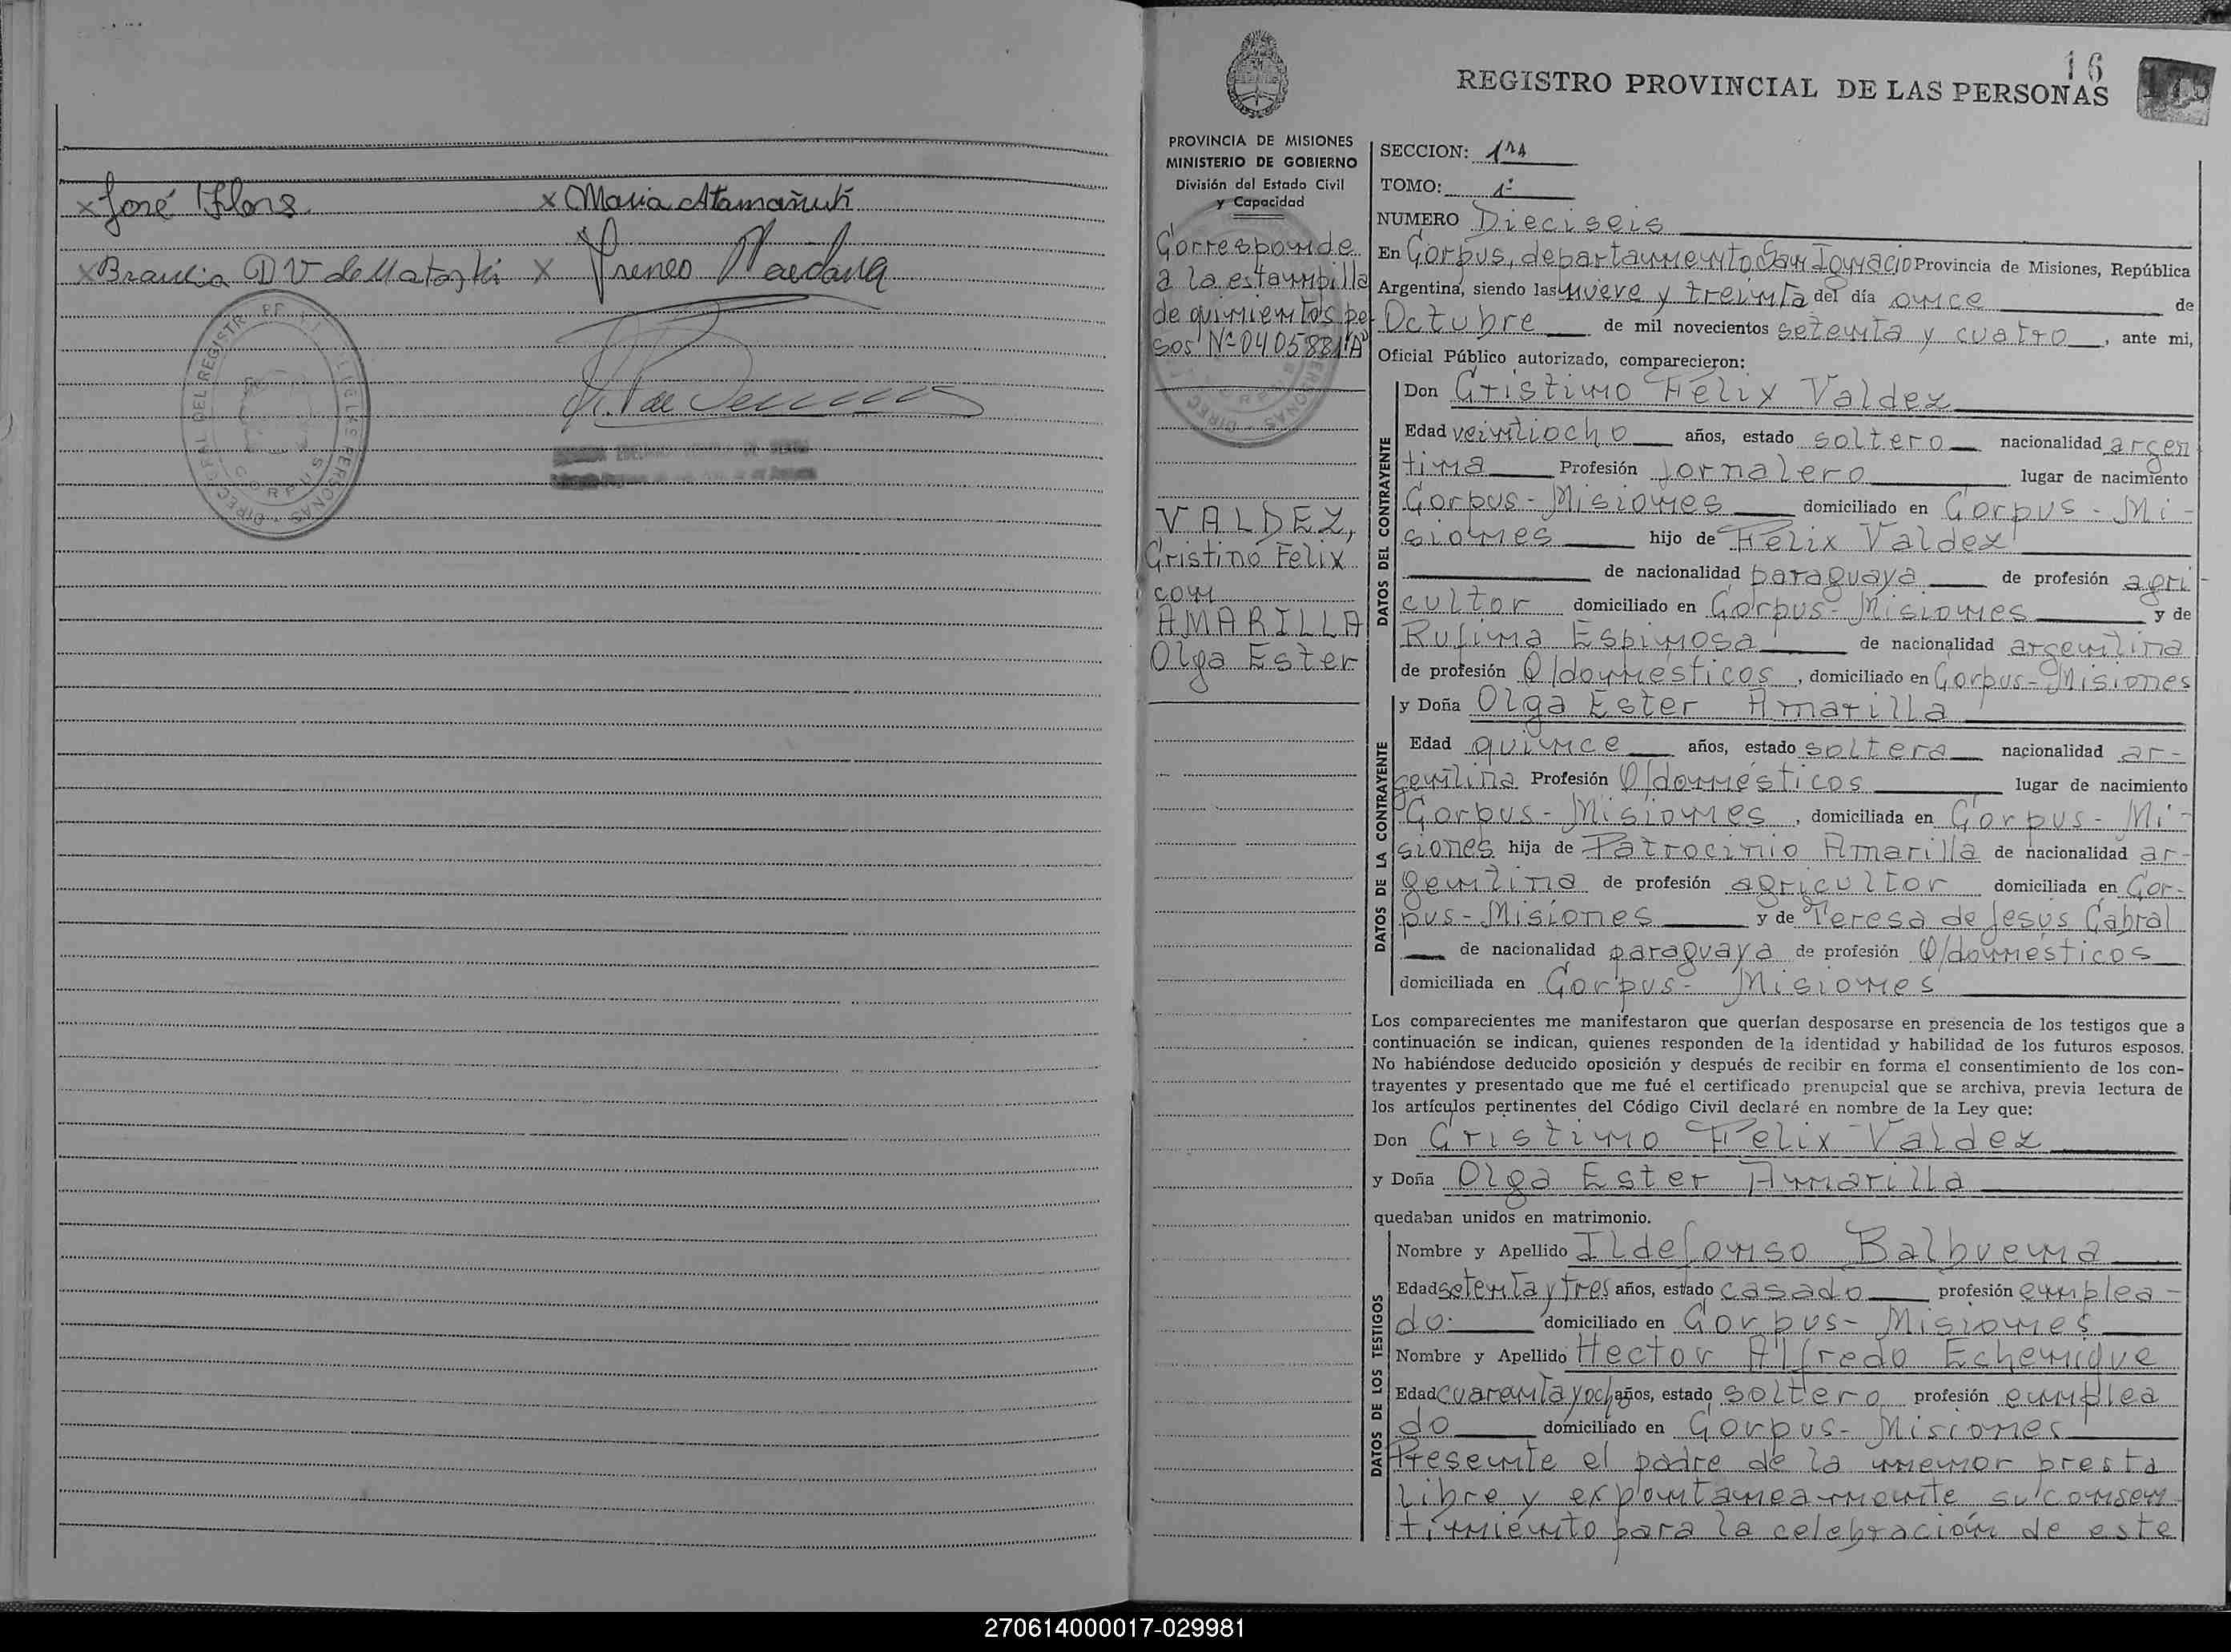 x José Flors x Maria Atamañuk
x Braulia D V de Matoski x Yreneo Maidana
DIRECC. GRAL. DEL REGISTR. PERSONAS
CORPUS
16
REGISTRO PROVINCIAL DE LAS PERSONAS
PROVINCIA DE MISIONES
MINISTERIO DE GOBIERNO
División del Estado Civil
y Capacidad
Corresponde
a la estampilla
de quinientos pe
sos Nº 0405881"A"
VALDEZ,
Cristino Felix
con
AMARILLA
Olga Ester
SECCION: 1ra
TOMO: 1º
NUMERO Dieciseis
En Corpus, departamento San Ignacio Provincia de Misiones, República
Argentina, siendo las nueve y treinta del día once de
Octubre de mil novecientos setenta y cuatro, ante mi,
Oficial Público autorizado, comparecieron:
DATOS DEL CONTRAYENTE
Don Cristino Felix Valdez
Edad veintiocho años, estado soltero nacionalidad argen
tina Profesión Jornalero lugar de nacimiento
Corpus - Misiones domiciliado en Corpus - Mi -
siones hijo de Felix Valdez
de nacionalidad paraguaya de profesión agri -
cultor domiciliado en Corpus - Misiones y de
Rufina Espinosa de nacionalidad argentina
de profesión Q/domesticos, domiciliado en Corpus - Misiones
DATOS DE LA CONTRAYENTE
y Doña Olga Ester Amarilla
Edad quince años, estado soltera nacionalidad ar -
gentina Profesión Q/domésticos lugar de nacimiento
Corpus - Misiones, domiciliada en Corpus - Mi -
siones hija de Patrocinio Amarilla de nacionalidad ar -
gentina de profesión agricultor domiciliada en Cor -
pus - Misiones y de Teresa de Jesús Cabral
de nacionalidad paraguaya de profesión Q/domésticos
domiciliada en Corpus - Misiones
Los comparecientes me manifestaron que querían desposarse en presencia de los testigos que a
continuación se indican, quienes responden de la identidad y habilidad de los futuros esposos.
No habiéndose deducido oposición y después de recibir en forma el consentimiento de los con-
trayentes y presentado que me fué el certificado prenupcial que se archiva, previa lectura de
los artículos pertinentes del Código Civil declaré en nombre de la Ley que:
Don Cristino Felix Valdez
y Doña Olga Ester Amarilla
quedaban unidos en matrimonio.
DATOS DE LOS TESTIGOS
Nombre y Apellido Ildefonso Balbuena
Edad setenta y tres años, estado casado profesión emplea -
do. domiciliado en Corpus - Misiones
Nombre y Apellido Hector Alfredo Echenique
Edad cuarenta y och años, estado soltero profesión emplea
do domiciliado en Corpus - Misiones
Presente el padre de la menor presta
libre y expontaneamente su consen
timiento para la celebración de este
270614000017-029981